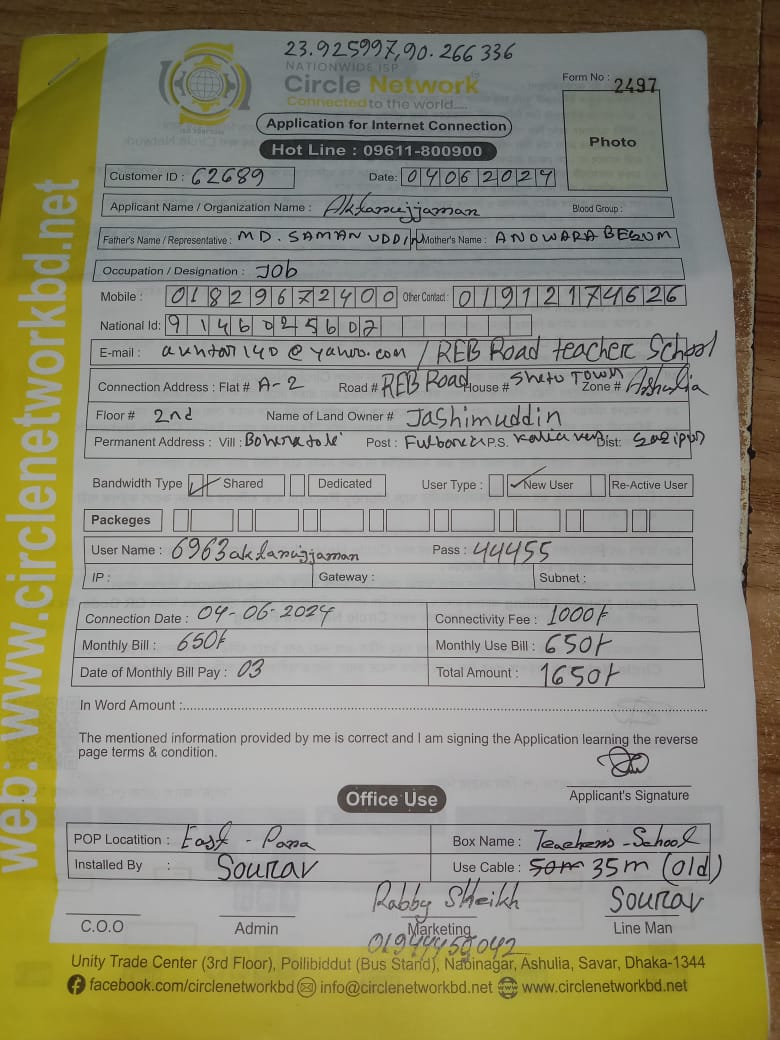 23.925997,90.266336
NATIONWIDE ISP
Circle Network
Connected to the world....
Form No : 2497
Application for Internet Connection
Photo
Hot Line : 09611-800900
Customer ID : 62689 Date: 04062024
Applicant Name / Organization Name : Aktarujjaman Blood Group :
Father's Name / Representative : MD. SAMAN UDDIN Mother's Name : ANOWARA BEGUM
Occupation / Designation : JOB
Mobile : 01829672400 Other Contact : 01912174626
National Id: 9146025602
E-mail : @yahoo.com / REB Road teacher School
Connection Address : Flat # A-2 Road # REB Road House # Town Zone # Ashulia
Floor # 2nd Name of Land Owner # Jashimuddin
Permanent Address : Vill : Post : P.S. Dist: Gazipur
Bandwidth Type Shared Dedicated User Type : New User Re-Active User
Packeges
User Name : 6963aktarujjaman Pass : 44455
IP : Gateway : Subnet :
Connection Date : 04-06-2024 Connectivity Fee : 1000/-
Monthly Bill : 650/- Monthly Use Bill : 650/-
Date of Monthly Bill Pay : 03 Total Amount : 1650/-
In Word Amount :
The mentioned information provided by me is correct and I am signing the Application learning the reverse
page terms & condition.
Applicant's Signature
Office Use
POP Locatition : East - Para Box Name : Teachers-School
Installed By : Sourav Use Cable : 50m 35m (old)
Rabby Sheikh Sourav
C.O.O Admin Marketing Line Man
01944459042
Unity Trade Center (3rd Floor), Pollibiddut (Bus Stand), Nabinagar, Ashulia, Savar, Dhaka-1344
facebook.com/circlenetworkbd info@circlenetworkbd.net www.circlenetworkbd.net
web: www.circlenetworkbd.net